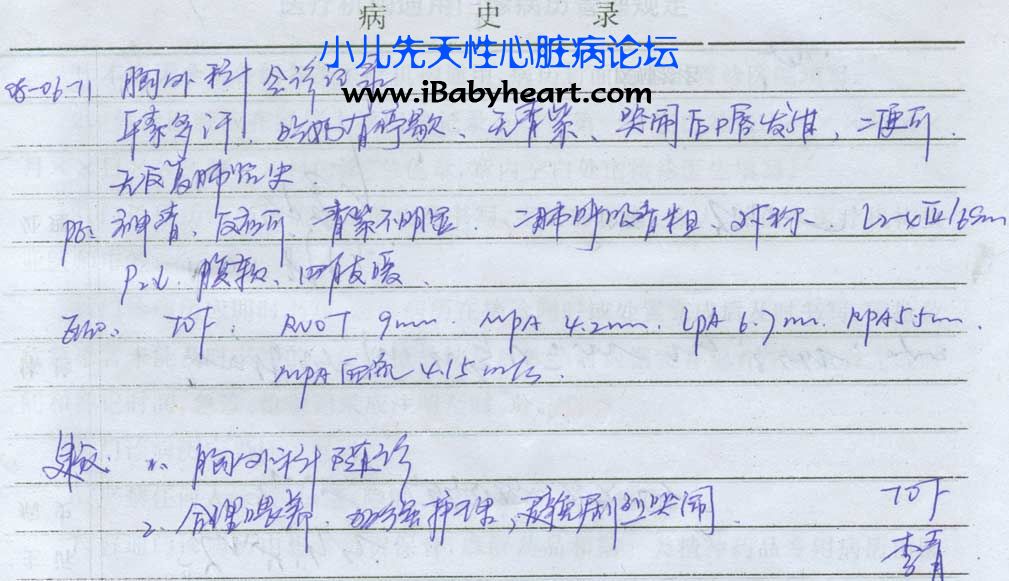 病 史 录
小儿先天性心脏病论坛
www.iBabyheart.com
胸外科会诊记录
平素多汗, 吃奶有停歇、无青紫、哭闹后口唇发绀, 二便可.
无反复肺炎史
PE: 神清、反应可、青紫不明显. 二肺呼吸音粗、对称、 L2-4 Ⅲ/6Sm
P2↓. 腹软、四肢暖.
Echo: TOF: RVOT 9mm. MPA 4.2mm. LPA 6.7mm. RPA 5.5mm.
MPA 流 4.15m/s.
建议 1. 胸外科随诊
2. 合理喂养, 加强护理, 避免剧烈哭闹. TOF
李青